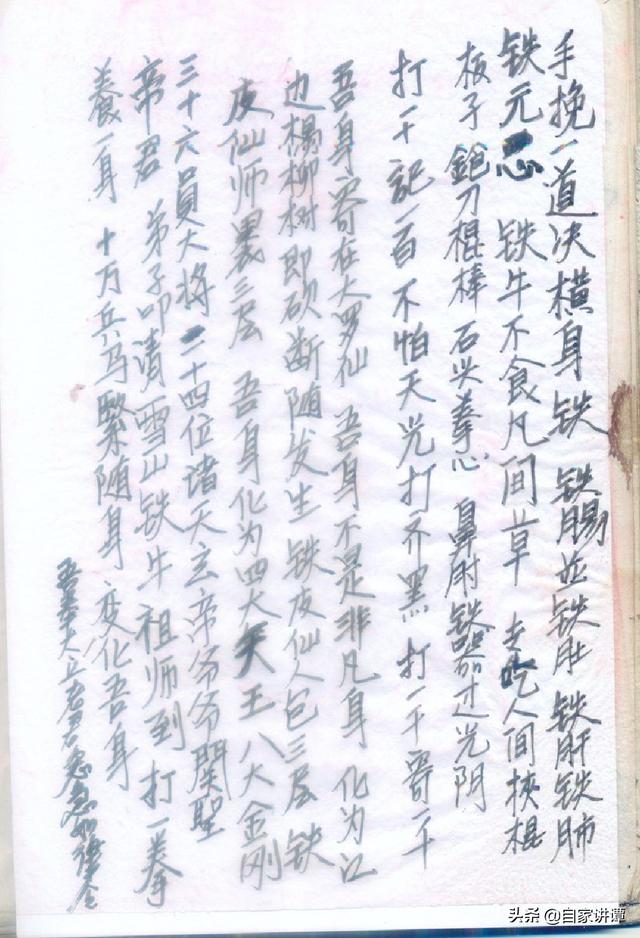 手挽一道决横身铁 铁肠並铁肚铁肝铁肺
铁元 铁牛不食凡间草 专吃人间挟棍
板子鉋刀棍棒 石头拳心 鼻肘铁器过光阴
打一千記一百不怕天光打齐黑 打一千寄一千
吾身寄在大罗仙 吾身不是非凡身 化为江
边楊柳树即砍断随发生铁皮仙人包三层铁
皮仙师裹三层 吾身化为四大天王八大金刚
三十六員大将 二十四位诸天玄帝爷爷関聖
帝君 弟子叩请雪山铁牛祖师到 打一拳
養一身 十万兵马緊随身变化吾身
吾奉太上老君急急如律令
头条 @自家讲谭